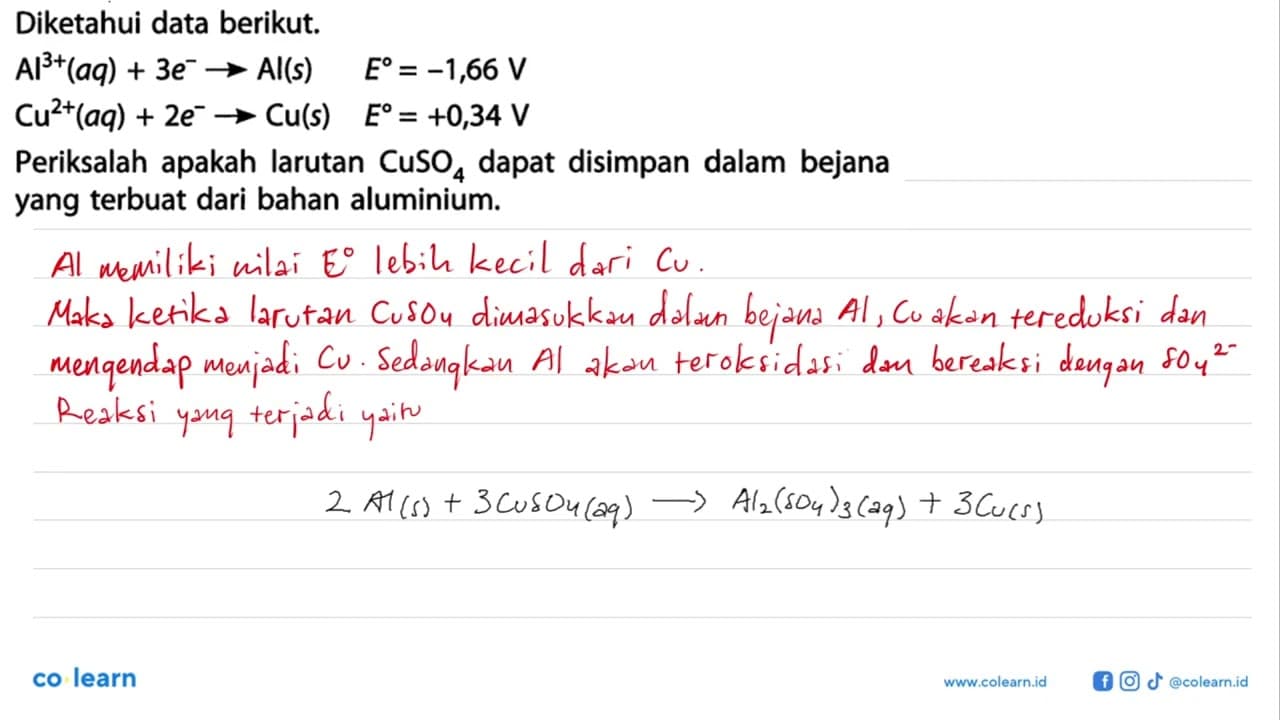 Diketahui data berikut.
Al³⁺(aq) + 3e⁻ → Al(s) E° = −1,66 V
Cu²⁺(aq) + 2e⁻ → Cu(s) E° = +0,34 V
Periksalah apakah larutan CuSO₄ dapat disimpan dalam bejana
yang terbuat dari bahan aluminium.
Al memiliki nilai E° lebih kecil dari Cu.
Maka ketika larutan CuSO₄ dimasukkan dalam bejana Al, Cu akan tereduksi dan
mengendap menjadi Cu. Sedangkan Al akan teroksidasi dan bereaksi dengan SO₄²⁻
Reaksi yang terjadi yaitu
2 Al(s) + 3CuSO₄(aq) → Al₂(SO₄)₃(aq) + 3Cu(s)
co learn www.colearn.id @colearn.id